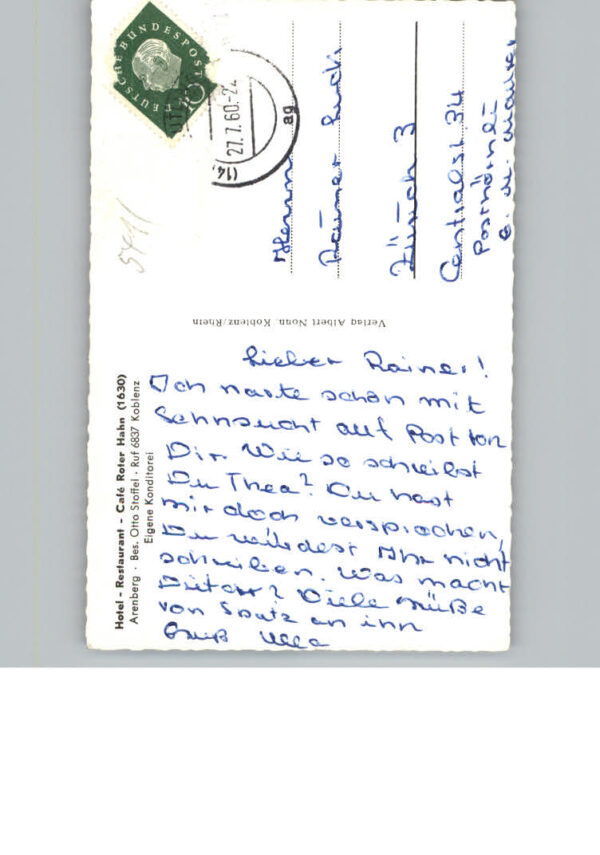 Hotel - Restaurant - Café Roter Hahn (1630)
Arenberg · Bes. Otto Stoffel · Ruf 6837 Koblenz
Eigene Konditorei
Lieber Rainer!
Ich warte schon mit
Sehnsucht auf Post von
Dir. Wieso schreibst
Du Thea? Du hast
mir doch versprochen,
Du würdest Ihr nicht
schreiben. Was macht
Dieter? Viele Grüße
von Spatz an ihn
Gruß Ulla
Verlag Albert Nonn, Koblenz/Rhein
DEUTSCHE BUNDESPOST
10
27.7.60-24
ag
Herrn
Rainer
Zürich 3
Centralst 34
5411